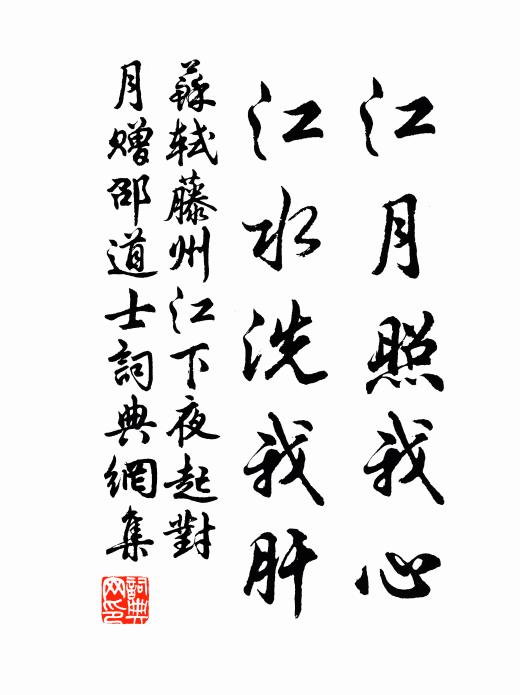 江月照我心
江水洗我肝
蘇軾藤州江下夜起對
月贈邵道士詞典網集
詞典
网印